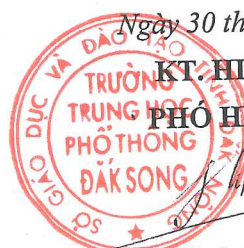 Ngày 30 th
KT. HI
PHÓ H
SỞ GIÁO DỤC VÀ ĐÀO TẠO TỈNH ĐẮK NÔNG
TRƯỜNG
TRUNG HỌC
PHỔ THÔNG
ĐẮK SONG